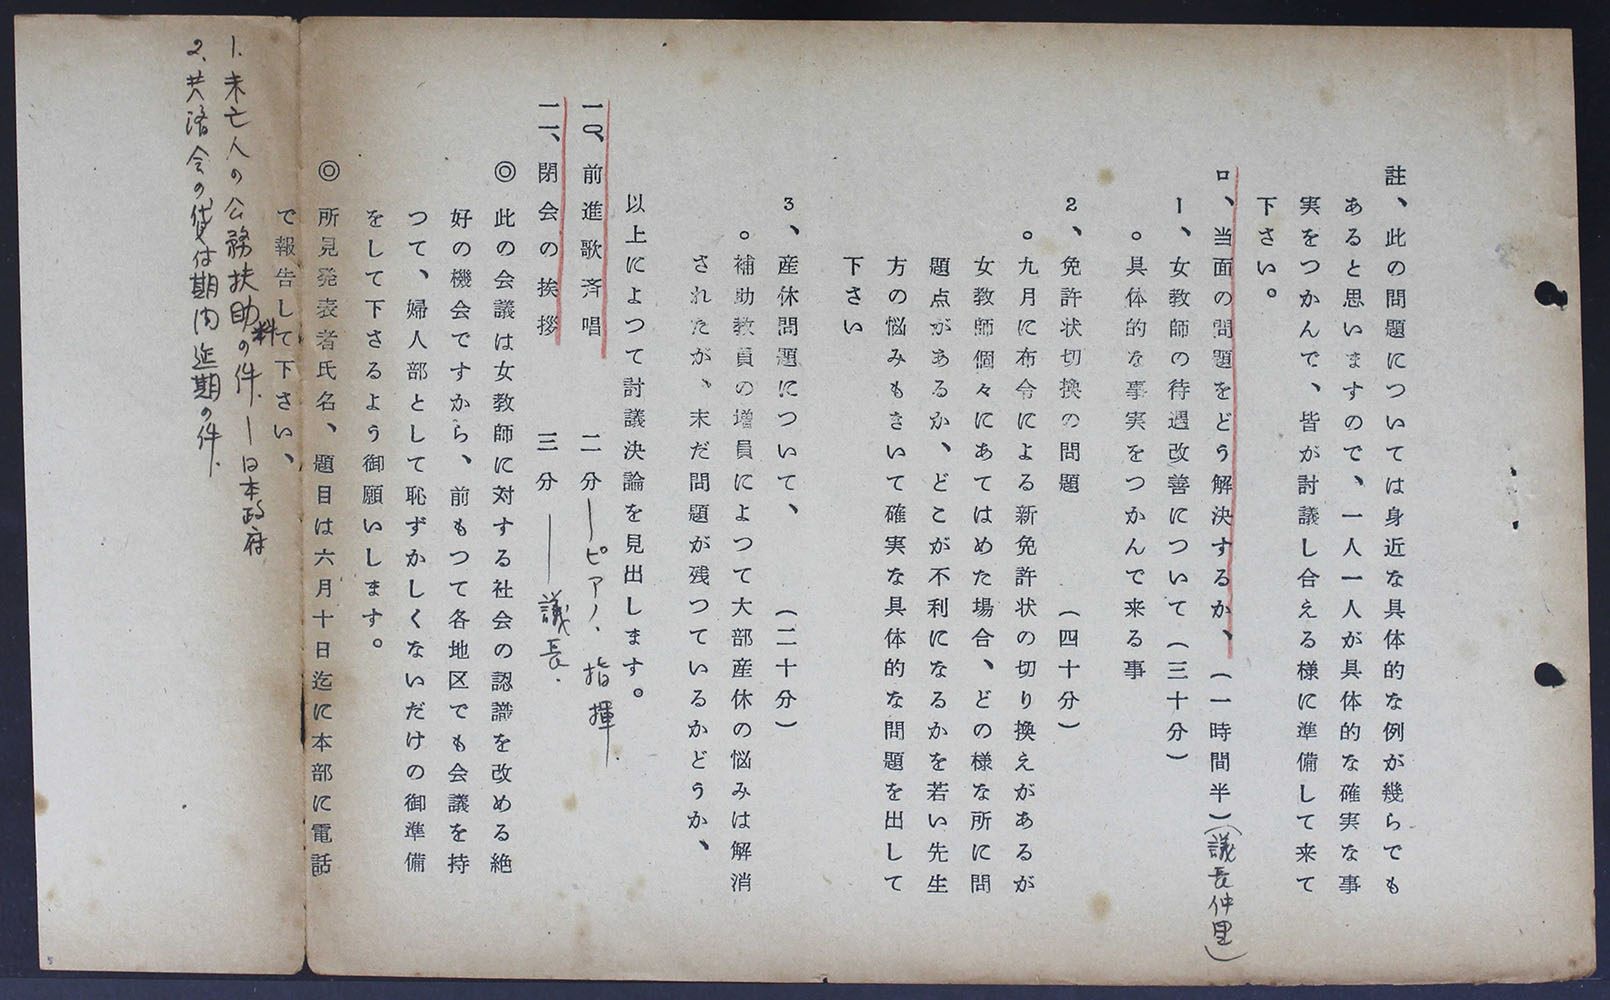 註、此の問題については身近な具体的な例が幾らでも
あると思いますので、一人一人が具体的な確実な事
実をつかんで、皆が討議し合える様に準備して来て
下さい。
ロ、当面の問題をどう解決するか、(一時間半)(議長仲里)
1、女教師の待遇改善について(三十分)
○具体的な事実をつかんで来る事
2、免許状切換の問題 (四十分)
○九月に布令による新免許状の切り換えがあるが
女教師個々にあてはめた場合、どの様な所に問
題点があるか、どこが不利になるかを若い先生
方の悩みもきいて確実な具体的な問題を出して
下さい
3、産休問題について、 (二十分)
○補助教員の増員によつて大部産休の悩みは解消
されたが、末だ問題が残つているかどうか、
以上によつて討議決論を見出します。
一〇、前進歌斉唱 二分―ピアノ、指揮
一一、閉会の挨拶 三分―議長.
◎此の会議は女教師に対する社会の認識を改める絶
好の機会ですから、前もつて各地区でも会議を持
つて、婦人部として恥ずかしくないだけの御準備
をして下さるよう御願いします。
◎所見発表者氏名、題目は六月十日迄に本部に電話
で報告して下さい、
1.未亡人の公務扶助料の件.―日本政府
2、共済会の貸付期間延期の件.